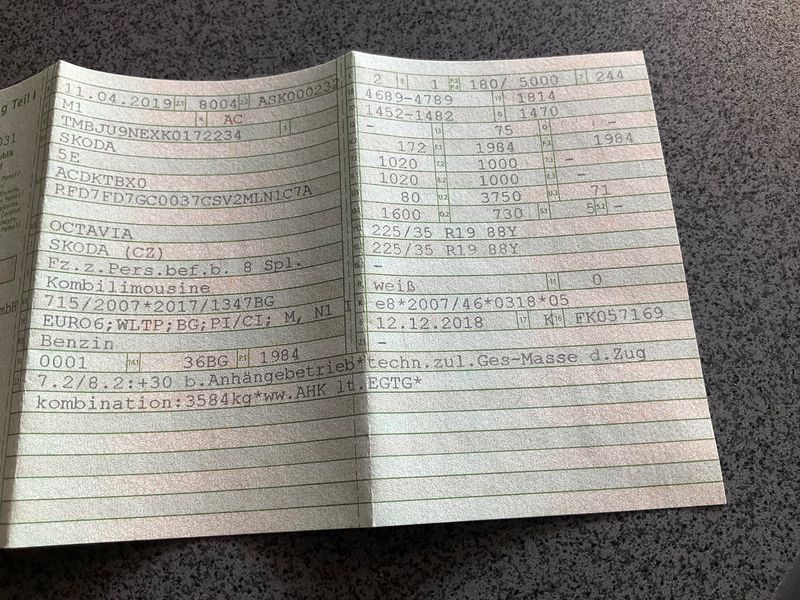 g Teil I
031
publik
mbH
11.04.2019 2.1 8004 2.2 ASK000232
M1 4 AC
TMBJU9NEXK0172234 3
SKODA
5E
ACDKTBX0
RFD7FD7GC0037CSV2MLN1C7A
OCTAVIA
SKODA (CZ)
Fz.z.Pers.bef.b. 8 Spl.
Kombilimousine
715/2007*2017/1347BG
EURO6;WLTP;BG;PI/CI; M, N1 I
Benzin
0001 14.1 36BG P.1 1984
7.2/8.2:+30 b.Anhängebetrieb*techn.zul.Ges-Masse d.Zug
kombination:3584kg*ww.AHK lt.EGTG*
2 9 1 P.2 P.4 180/ 5000 T 244
4689-4789 19 1814
1452-1482 G 1470
- 13 75 Q -
172 F.1 1984 F.2 1984
1020 7.2 1000 7.3 -
1020 8.2 1000 8.3 -
80 U.2 3750 U.3 71
1600 O.2 730 S.1 5 S.2 -
225/35 R19 88Y
225/35 R19 88Y
-
weiß 11 0
e8*2007/46*0318*05
12.12.2018 17 K 16 FK057169
-